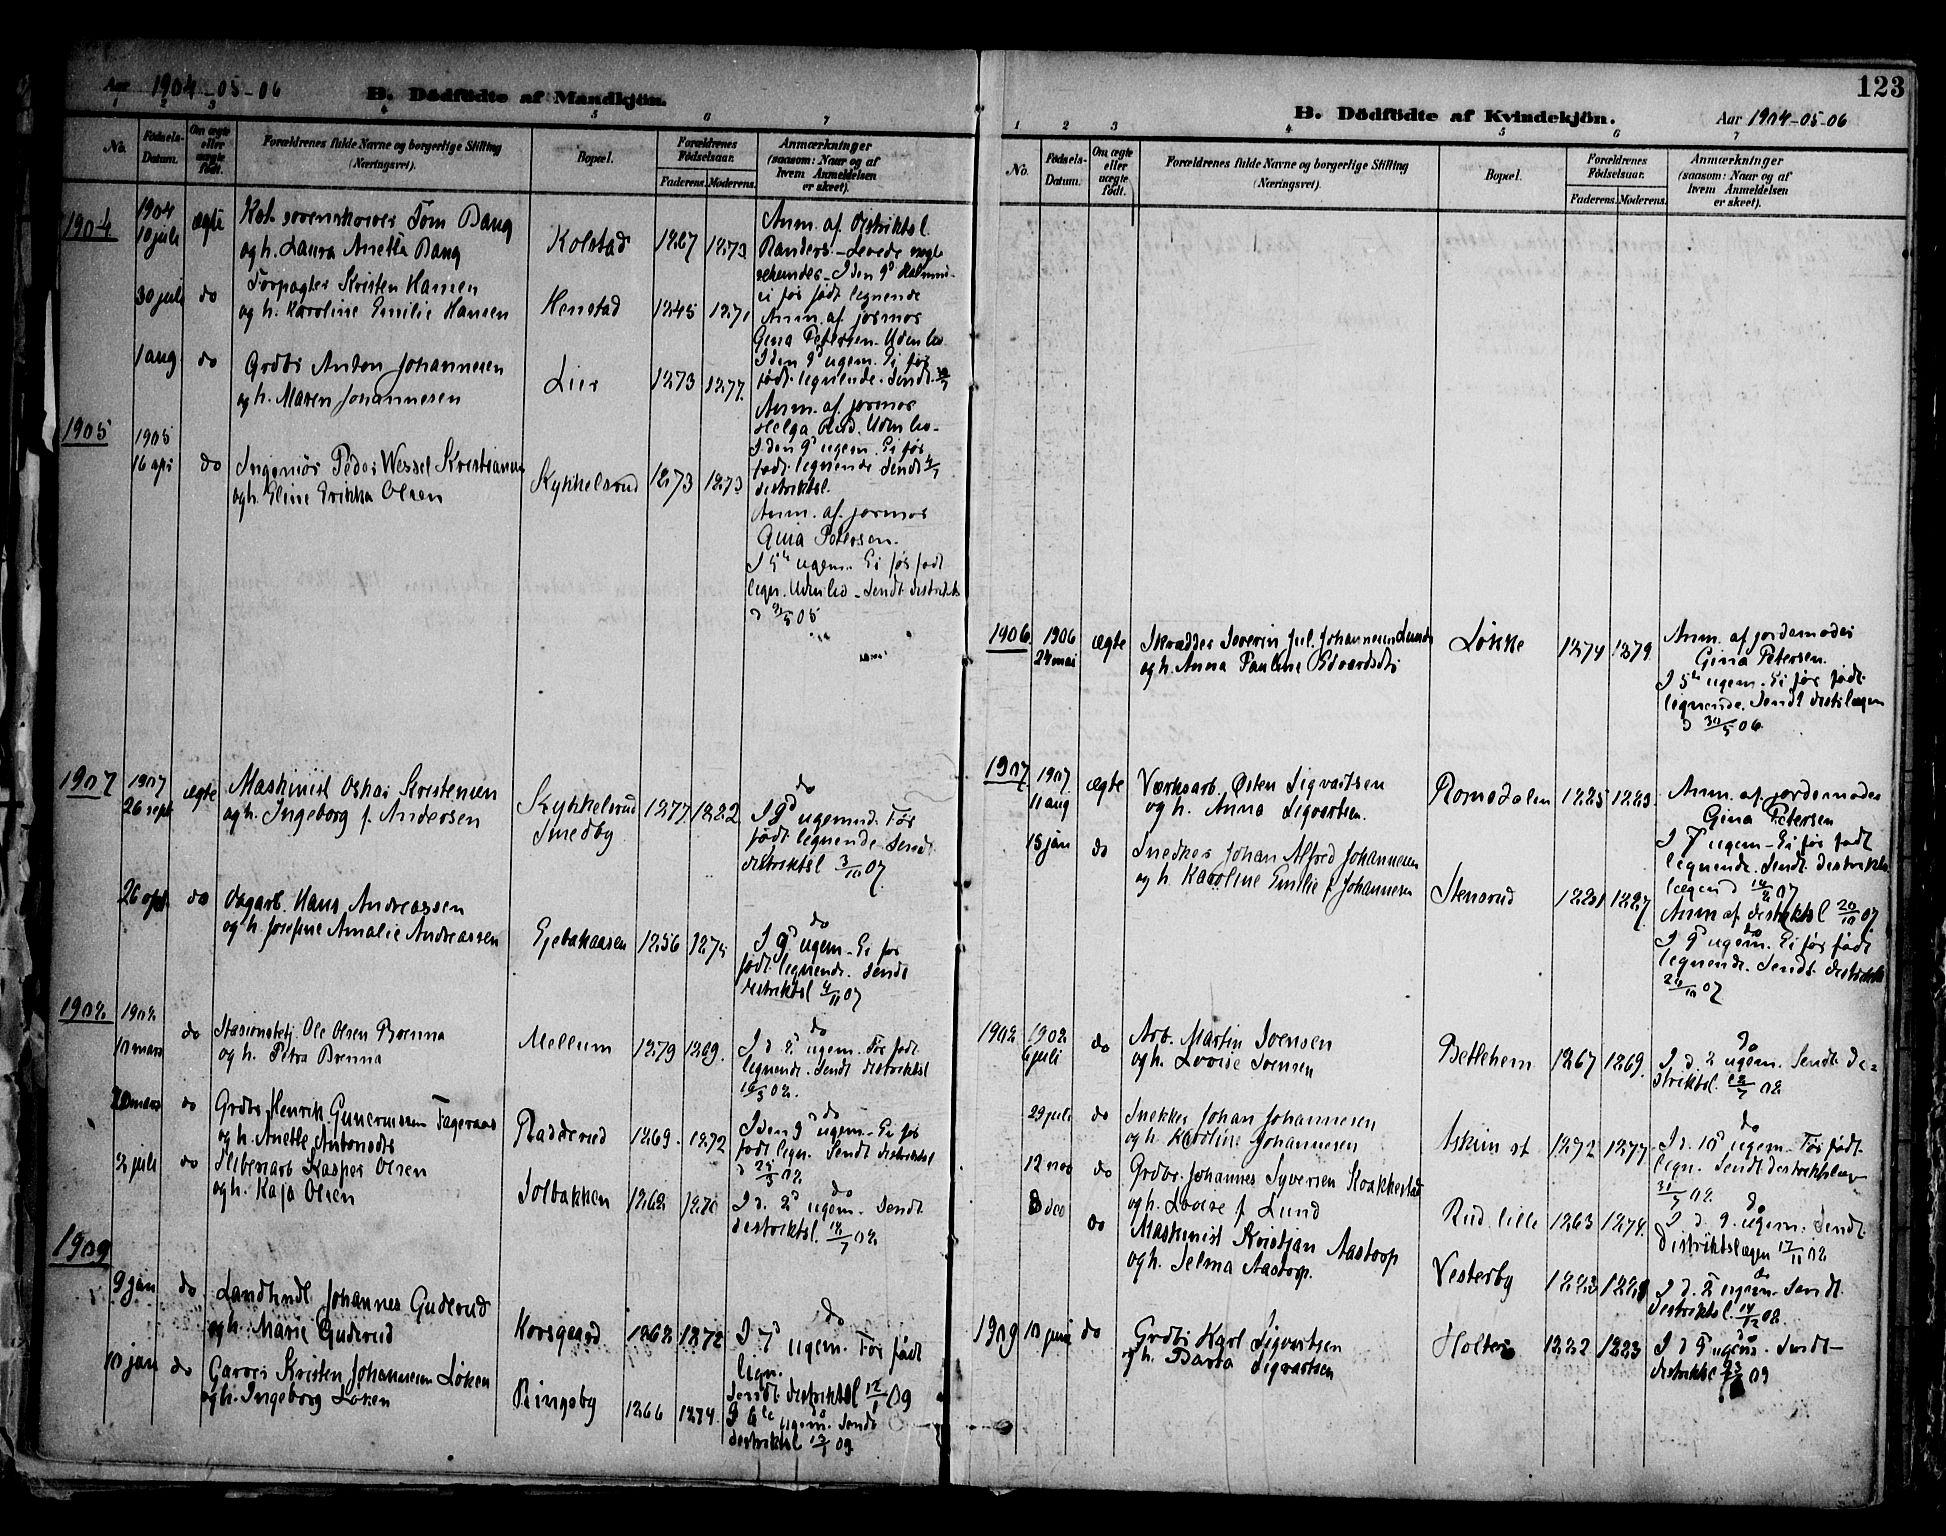 Aar 1904-05-06
B. Dödfödte af Mandkjön.
1 2 3 4 5 6 7
No.
Födsels-Datum.
Om ægte eller uægte födt.
Forældrenes fulde Navne og borgerlige Stilling
(Næringsvei).
Bopæl.
Forældrenes Födselsaar.
Faderens. Moderens.
Anmærkninger
(saasom: Naar og af
hvem Anmeldelsen
er skeet).
1904 1904
10 juli ægte Tom Bang
og h. Laura Anette Bang
Kolstad 1867 1873
Anm. af distriktsl.
Randers - Levede nogle
sekunder - I den 9d
ei før født lignende
30 juli do Forpagter Kristen Hansen
og h. Karoline Emilie Hansen
Henstad 1845 1871
Anm. af jormor
Gina Petersen. Uden liv
I den 9d ugem. Ei før
født lignende. Sendt
1 aug do Grdbr Anton Johannesen
og h. Maren Johannesen
Lier 1873 1877
Anm. af jormor
Helga Rud. Uden liv.
I den 9d ugem. Ei før
født lignende Sendt
distriktsl.
1905 1905
16 apr do Ingeniør Peder Wessel Kristiansen
og h. Eline Erikka Olsen
Kykkelsrud 1873 1873
Anm. af jormor
Gina Petersen.
I 5te ugem. Ei før født
lign. Uden liv - Sendt distriktsl
1907 1907
26 sept ægte Maskinist Oskar Kristensen
og h. Ingeborg f. Andersen
Kykkelsrud
Smedby
1877 1882
do
I 9d ugemnd. Før
født lignende. Sendt
distriktsl 3/10 07
26 okt do Dagarb. Hans Andreassen
og h. Josefine Amalie Andreassen
1856 1874
do
I 9d ugem - Ei før
født lignende. Sendt
distriktsl 4/11 07
1908 1908
10 mars do Stasionsbetj. Ole Olsen Brenna
og h. Petra Brenna
Mellum 1879
do
I d. 8d ugem. Før født
lignende. Sendt distriktsl
16/3 08.
20 mars do Grdbr Henrik Gunerussen Fageraas
og h. Anette Antonsdtr
Radderud 1869. 1872
do
I den 9d ugem - Ei før
født lign. Sendt distriktsl
2 juli do Slibersarb Kasper Olsen
og h. Kaja Olsen
Solbakken 1868
do
I d. 8d ugem. Sendt
distriktsl. 18/7 08
1909
9 jan do Landhndl Johannes Guderud
og h. Marie Guderud
Korsgaard 1868 1872
do
I 7d ugem. Før født
lign.
Sendt distriktsl 12/1 09
10 jan do Garver Kristen Johannesen Løken
og h. Ingeborg Løken
Ringsby 1866 1874.
do
I 6te ugem. Sendt
distriktsl 09
123
B. Dödfödte af Kvindekjön.
Aar 1904-05-06
1 2 3 4 5 6 7
No.
Födsels-Datum.
Om ægte eller uægte födt.
Forældrenes fulde Navne og borgerlige Stilling
(Næringsvei).
Bopæl.
Forældrenes Födselsaar.
Faderens. Moderens.
Anmærkninger
(saasom: Naar og af
hvem Anmeldelsen
er skeet).
1906 1906
24 mai ægte Skrædder Severin Jul. Johannesen Lunde
og h. Anna Pauline Edvardsdtr
Løkke 1874 1879
Anm. af jordemoder
Gina Petersen.
I 5te ugem - Ei før født
lignende. Sendt distrlægen
d 30/5 06
1907 1907
11 aug ægte Værksarb. Østen Sigvartsen
og h. Anna Sigvartsen.
Romsdalen 1885 1883
Anm. af jordemoder
Gina Petersen
I 7d ugem - Ei før født
lignende. Sendt distrikts
lægen
15 jan do Snedker Johan Alfred Johannesen
og h. Karoline Emilie f Johannesen
Stensrud 1881 1887
Anm af distriktsl 20/10 07.
do
I 9d ugem. Ei før født
lignende. Sendt distriktsl
1908 1908
6 juli do Arb. Martin Svensen
og h. Lovise Svensen
Betlehem 1867 1869
do
I d. 8 ugem. Sendt di=
striktsl. 08
29 juli do Snekker Johan Johannesen
og h. Karoline Johannesen
Askim st 1872 1877
do
I d. 10d ugem - Før født
lign. Sendt distriktslæg
31/7 08.
12 nov do Grdbr. Johannes Syversen Skakkestad
og h. Lovise f Lund
Rud lille 1863 1874.
do
I d. 9. ugem. Sendt
Distriktslægen 17/11 08
8 dec do Maskinist Kristjan Aastorp
og h. Selma Aastorp.
Vesterby 1883 1888
do
I d. 8 ugem - Sendt
distriktsl. 14/12 08.
1909 10 juni do Grdbr Karl Sigvartsen
og h. Barta Sigvartsen
Holter 1882 1883
do
I d 9 ugem. Sendt
distriktsl 09